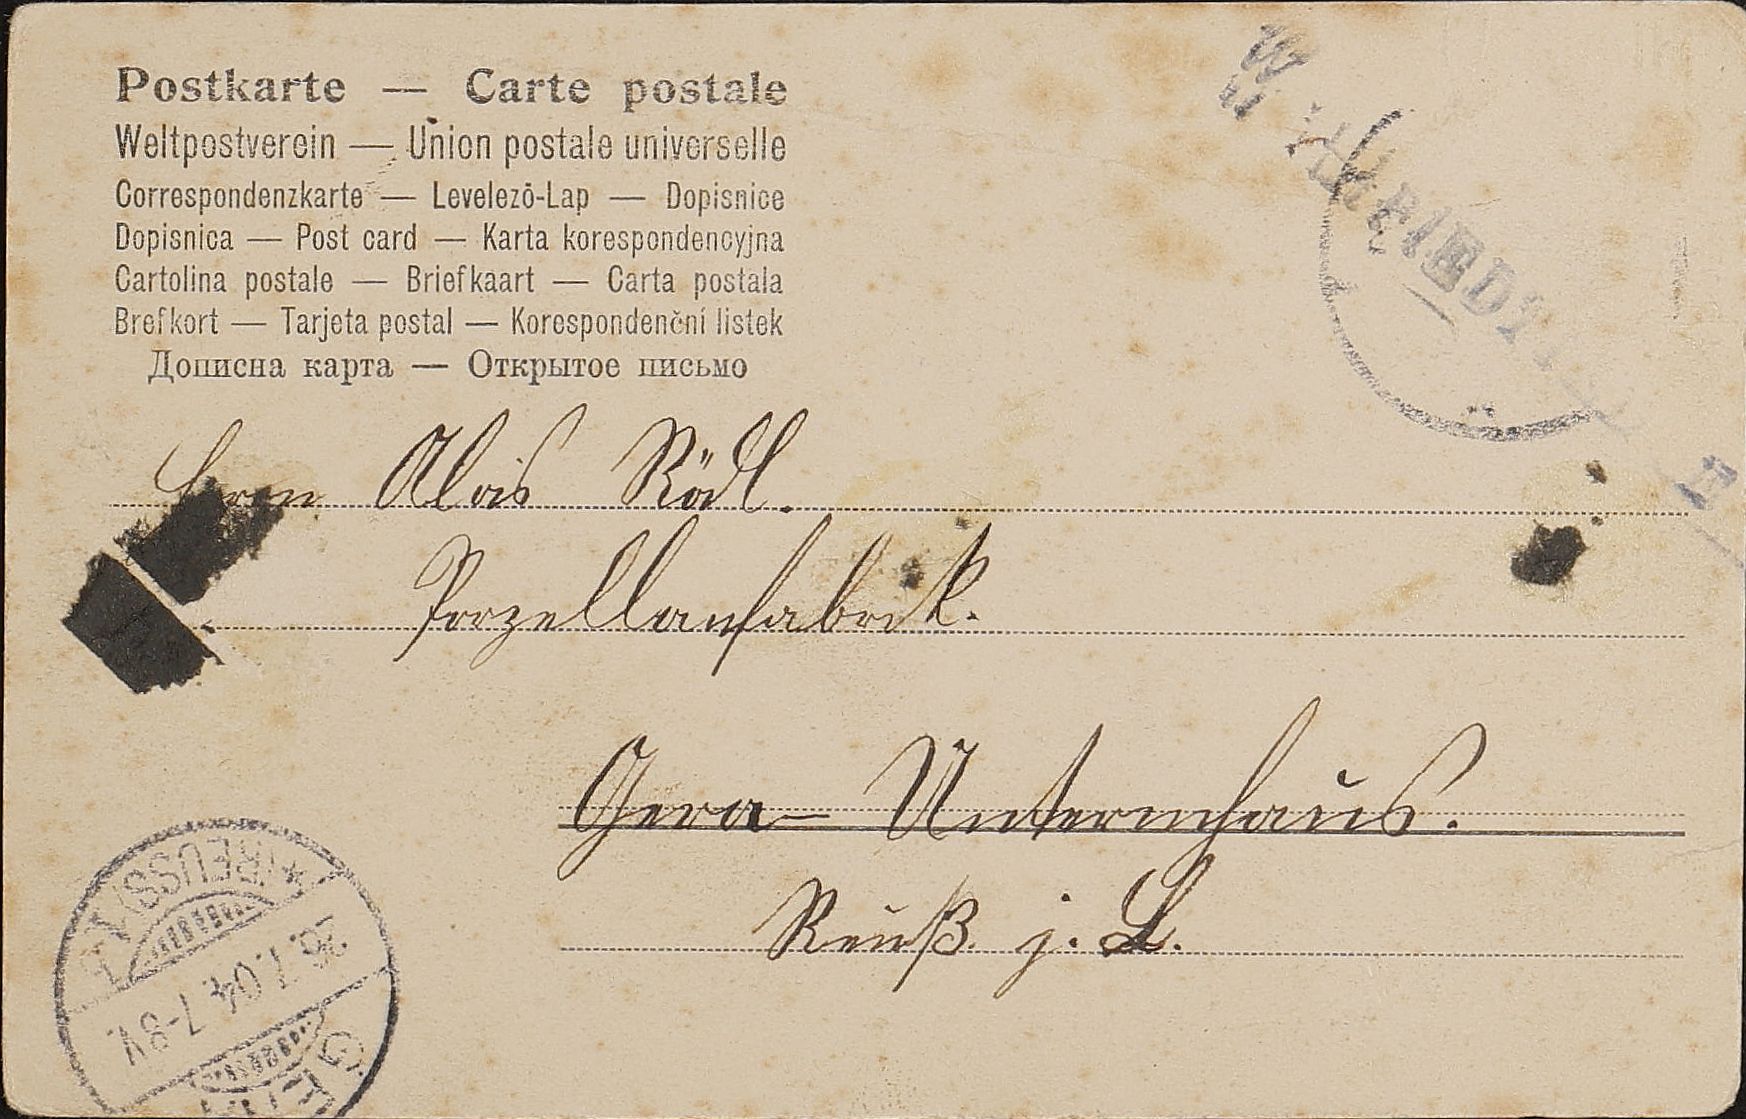 Postkarte — Carte postale
Weltpostverein — Union postale universelle
Correspondenzkarte — Levelező-Lap — Dopisnice
Dopisnica — Post card — Karta korespondencyjna
Cartolina postale — Briefkaart — Carta postala
Brefkort — Tarjeta postal — Korespondenční lístek
Дописна карта — Открытое письмо
Herrn Alois Rödl.
Porzellanfabrik.
Gera-Untermhaus.
Reuß j. L.
* (REUSS)
26.7.04. 7-8V.